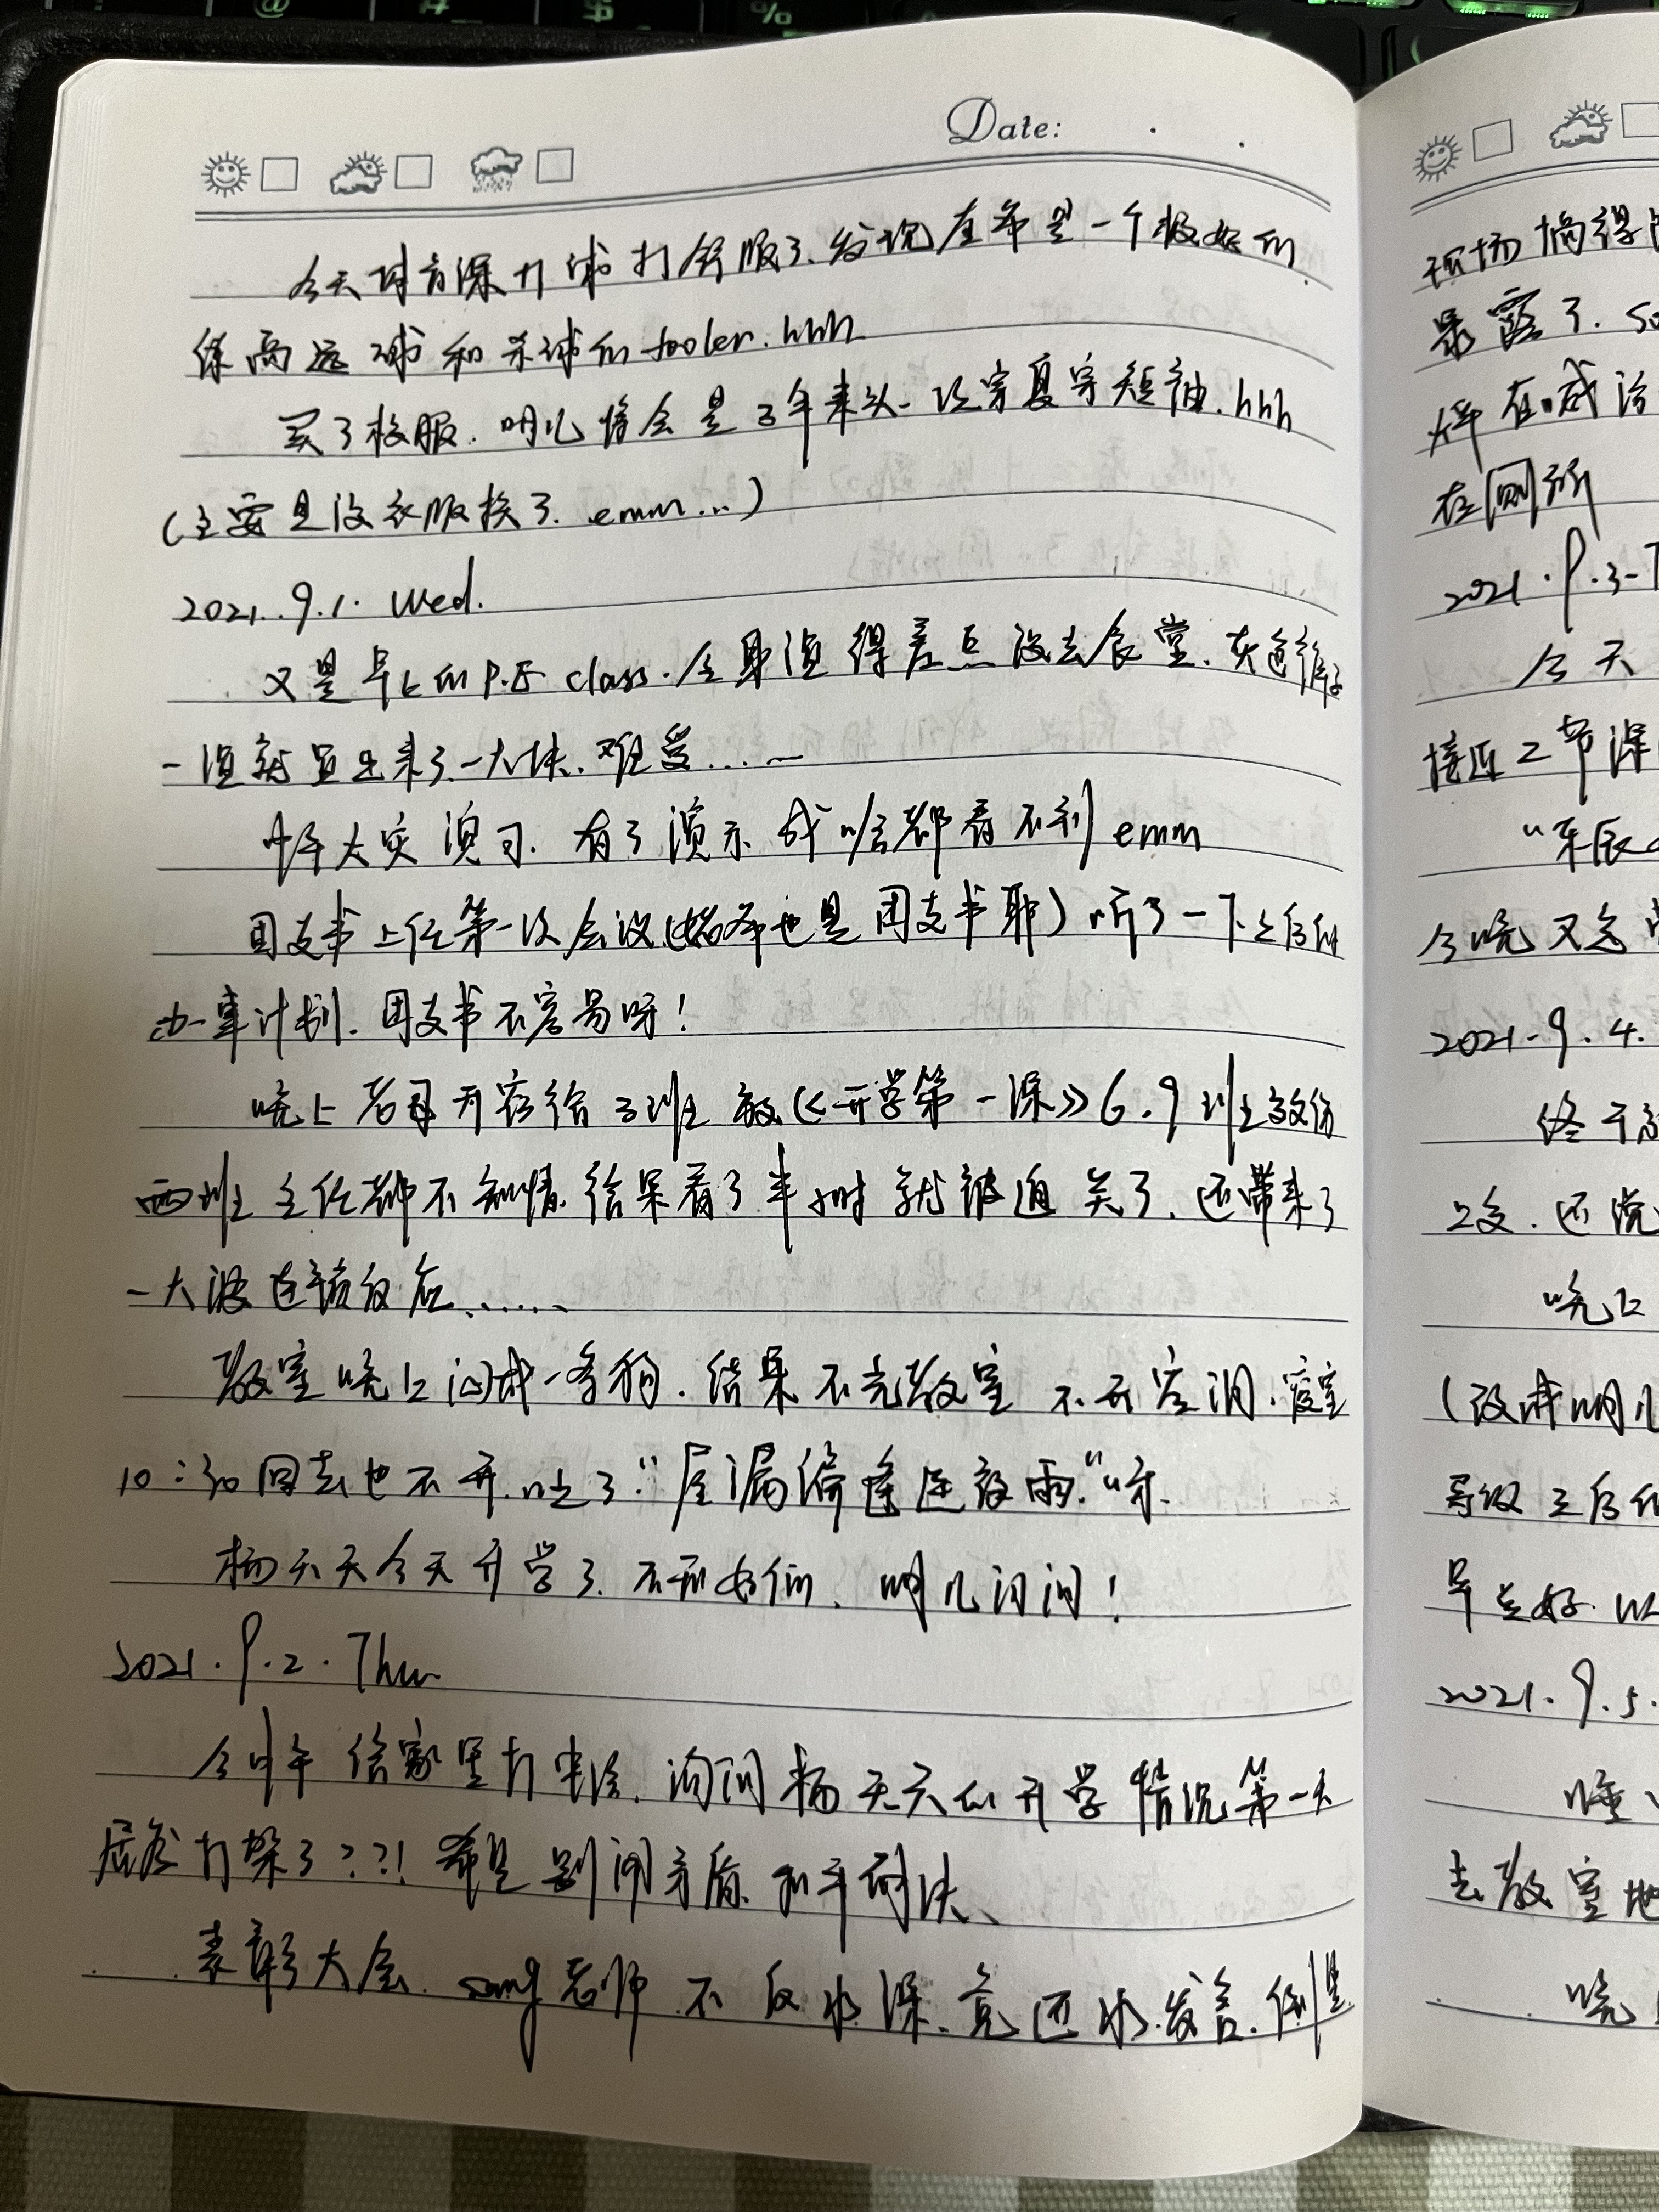 Date:
今天体育课打球打舒服了、发现 是一个极好的
练高远球和杀球的 fooler. hhh
买了校服. 明儿将会是3年来头一次穿夏穿短袖. hhh
(主要是没衣服换了. emm...)
2021. 9. 1. Wed.
又是早上的 P.E class. 全身湿得差点没去食堂. 灰色裤子
一湿就显出来了一大块. 难受......
中午火灾演习. 有了演示 我啥都看不到 emm
团支书上任第一次会议( 也是团支书耶) 听了一下之后的
办事计划. 团支书不容易呀!
晚上 开 给3班放《开学第一课》6.9班主
两班主任都不知情. 结果看了半小时就被迫关了. 还带来了
一大波连锁反应......
教室晚上闷成一条狗. 结果不光教室不开空调. 寝室
10:30回去也不开. 吐了. "屋漏偏逢连夜雨." 呀.
杨天天今天开学了. 不知如何. 明儿问问!
2021. 9. 2. Thur
今中午给家里打电话. 询问杨天天的开学情况 第一天
居然打架了??! 希望别闹矛盾. 和平解决、
表彰大会. song老师不仅水课. 竟还水发言. 倒是
现场搞得
暴露了. so
在厕所
2021. 9. 3.
今天
接近2节课
今晚又是
2021. 9. 4.
终于
2文. 还说
晚上
(没准明儿
导致之后的
早点好.
2021. 9. 5.
睡
去教室
晚